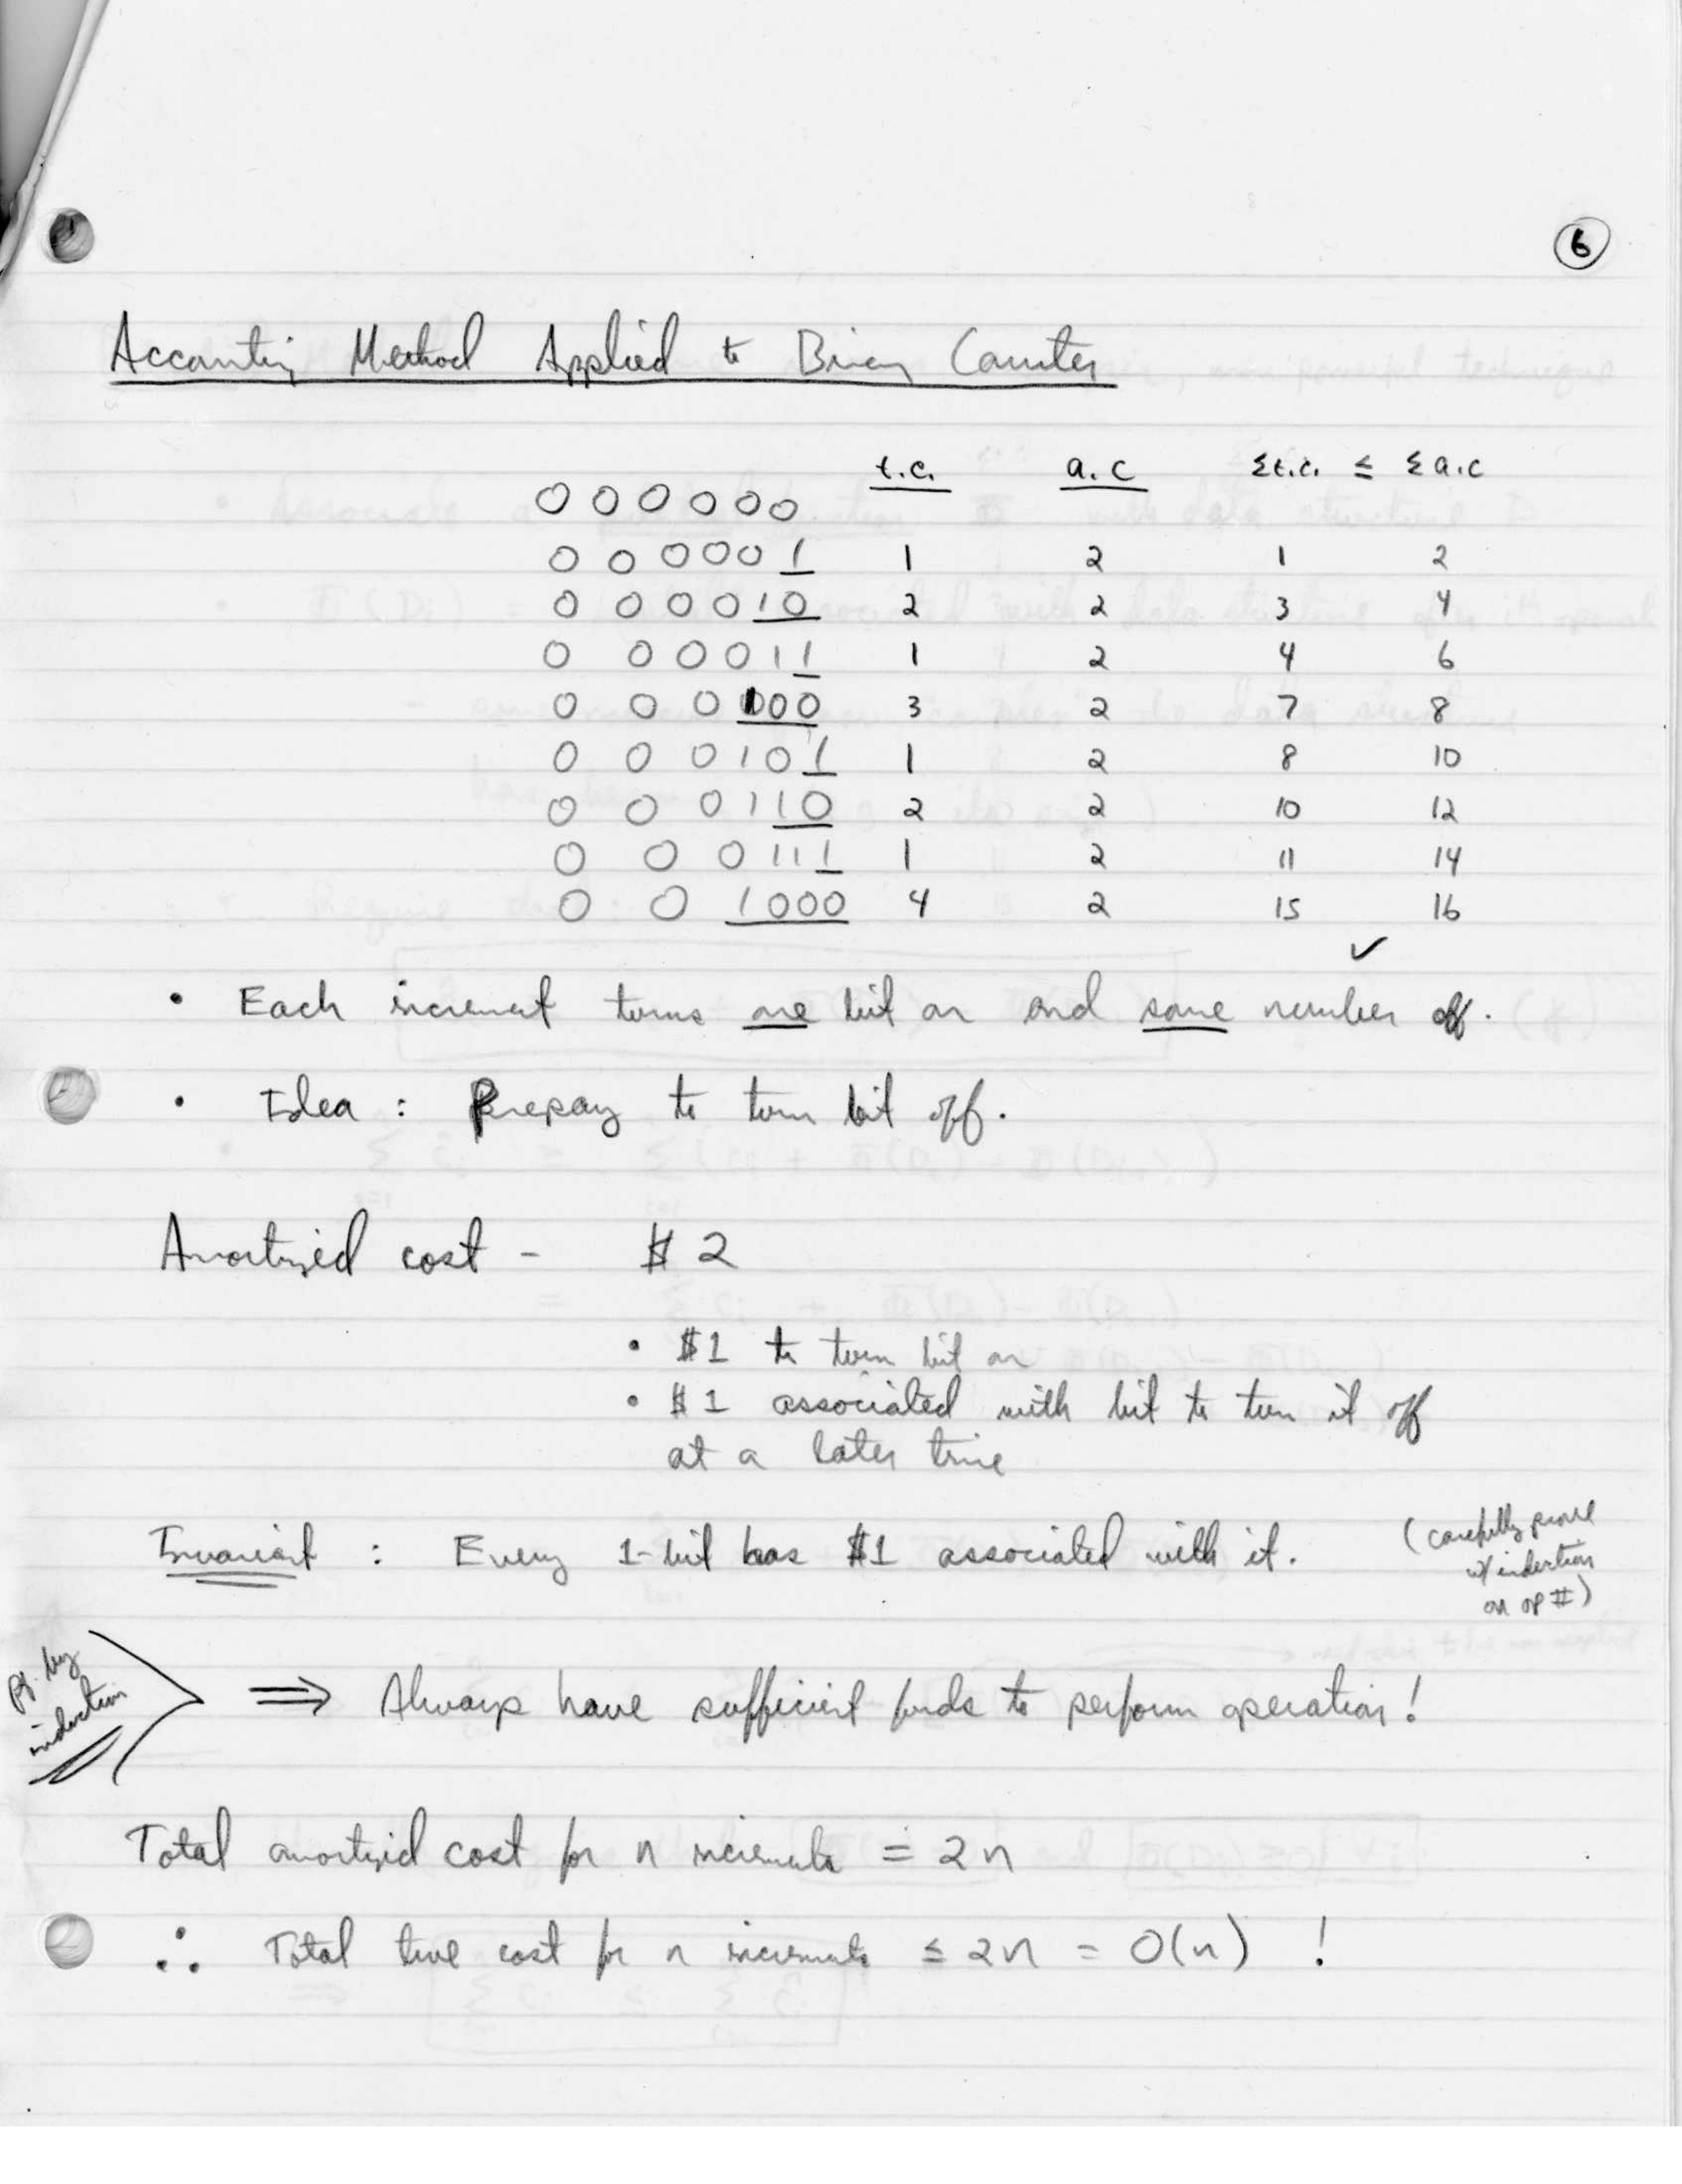 6
Accounting Method Applied to Binary Counter
t.c. a.c Σt.c. ≤ Σa.c
000000
000001 1 2 1 2
000010 2 2 3 4
000011 1 2 4 6
000100 3 2 7 8
000101 1 2 8 10
000110 2 2 10 12
000111 1 2 11 14
001000 4 2 15 16
✓
• Each increment turns one bit on and some number off.
• Idea : Prepay to turn bit off.
Amortized cost - $2
• $1 to turn bit on
• $1 associated with bit to turn it off
at a later time
Invariant : Every 1-bit has $1 associated with it. (carefully prove
w/ induction
on op #)
pf. by
induction
⟹ Always have sufficient funds to perform operation!
Total amortized cost for n increments = 2n
∴ Total true cost for n increments ≤ 2n = O(n) !